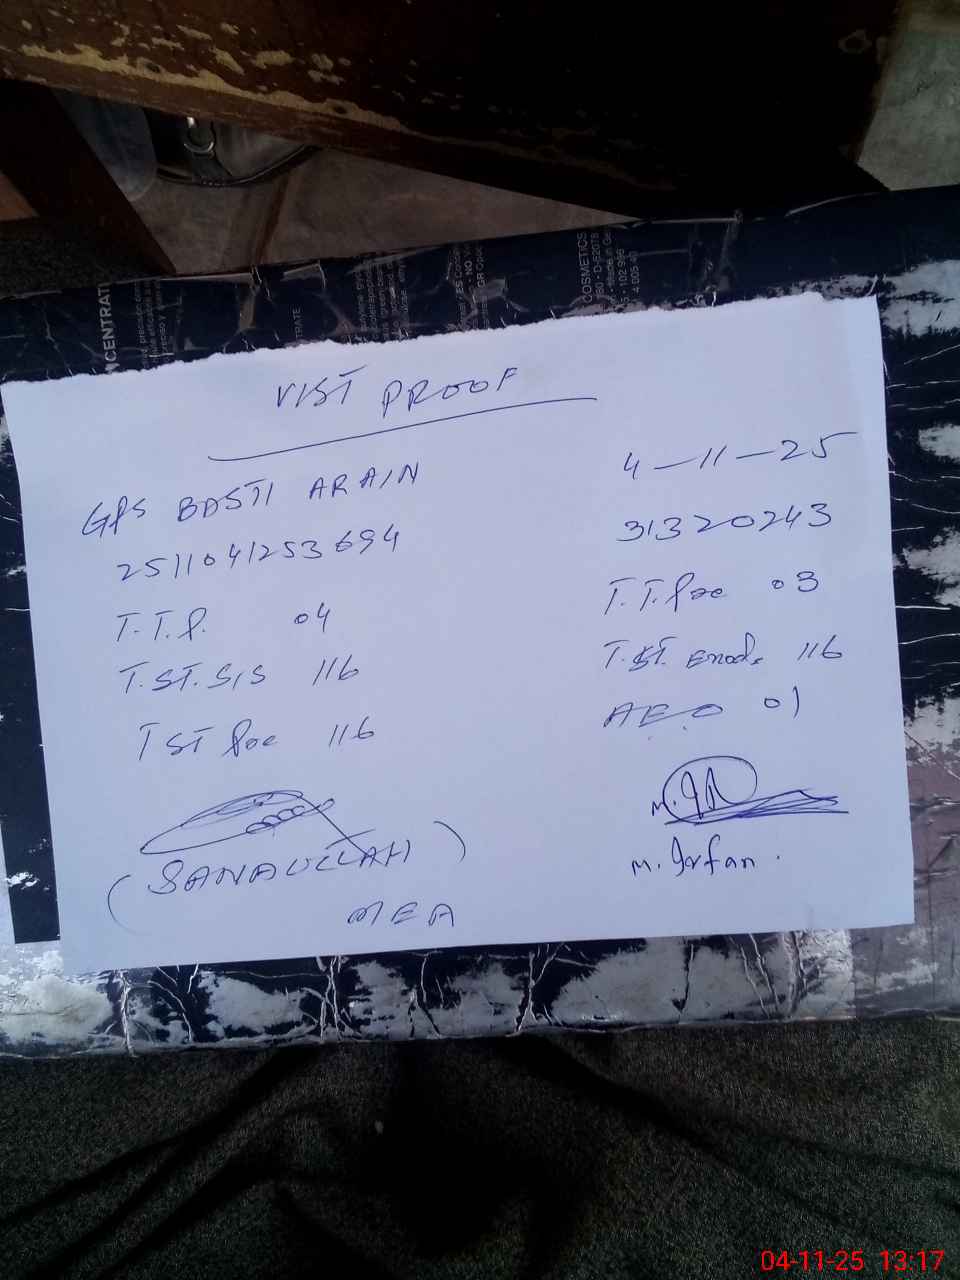 COSMETICS
NCENTRAT
TRATE
VIST PROOF
GPS BASTI ARAIN 4-11-25
2511041253694 31320243
T.T.P. 04 T.T.Pre 03
T.ST.SIS 116 T.ST. Enrol. 116
T ST Pre 116 AEO 01
(SANAULLAH) M. Irfan.
MEA
04-11-25 13:17